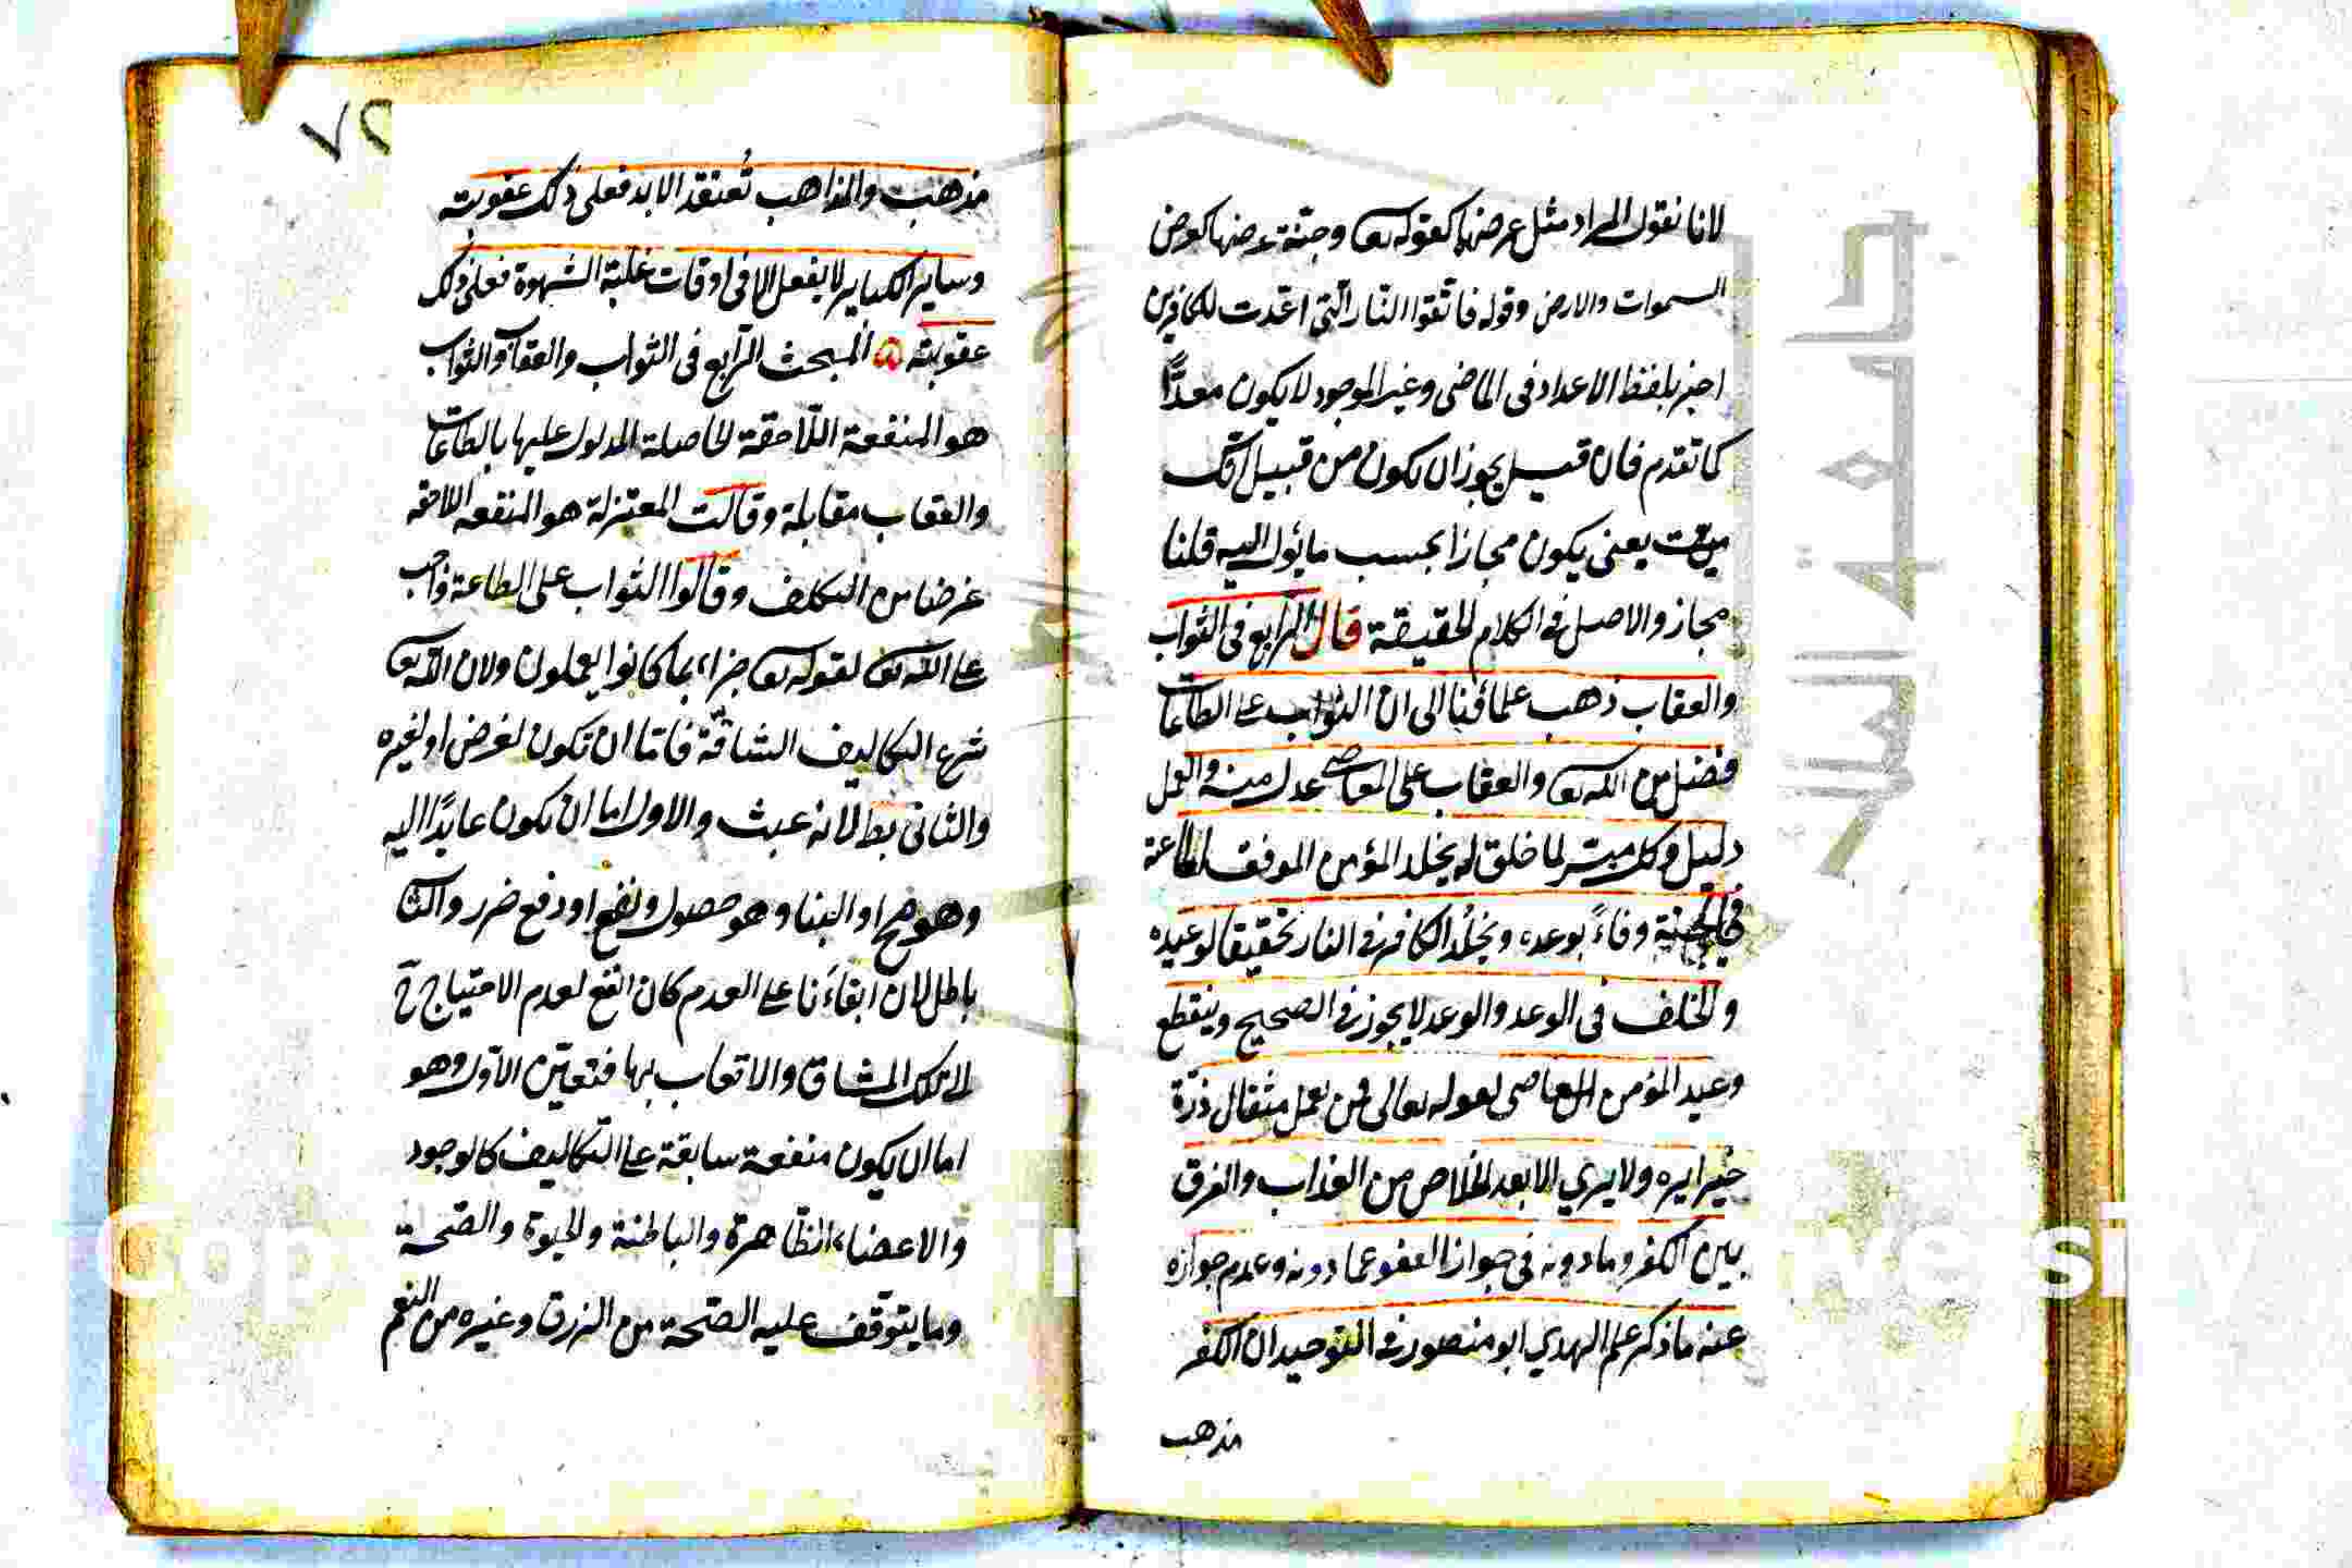 لانا نقول المراد مثل عرضها كقوله تع وجنة عرضها كعرض
السموات والارض وقوله فاتقوا النار التي اعدت للكافرين
اخبر بلفظ الاعداد فى الماضى وغير الموجود لا يكون معدًّا
كما تقدم فان قيل يجوز ان يكون من قبيل انك
ميت يعنى يكون مجازا بحسب ما يؤل اليه قلنا
مجاز والاصل فى الكلام الحقيقة قال الرابع فى الثواب
والعقاب ذهب علمائنا الى ان الثواب على الطاعات
فضل من الله تع والعقاب على المعاصى عدل منه والعمل
دليل وكل ميسر لما خلق له يخلد المؤمن الموفق للطاعة
فى الجنة وفاءً بوعده ويخلد الكافر فى النار تحقيقا لوعيده
والخلف فى الوعد والوعيد لا يجوز فى الصحيح وينقطع
وعيد المؤمن العاصى لقوله تعالى فمن يعمل مثقال ذرّة
خيرا يره ولا يري الا بعد الخلاص من العذاب والفرق
بين الكفر وما دونه فى جواز العفو عما دونه وعدم جوازه
عنه ما ذكر علم الهدي ابو منصور فى التوحيد ان الكفر
مذهب
٧٢
مذهب والمذاهب تُعتقد الابد فعلى ذلك عقوبته
وساير الكباير لا يفعل الا فى اوقات غلبة الشهوة فعلى ذلك
عقوبته ۵ المبحث الرابع فى الثواب والعقاب والثواب
هو المنفعة اللاحقة الحاصلة المدلول عليها بالطاعات
والعقاب مقابلة وقالت المعتزلة هو المنفعه اللاحقه
غرضا من التكلف وقالوا الثواب على الطاعة واجب
على الله تع لقوله تع جزاء بما كانوا يعملون ولان الله تع
شرع التكاليف الشاقة فاما ان تكون لغرض او لغيره
والثانى بط لانه عبث والاول اما ان يكون عايدًا اليه
وهو مح او الينا وهو حصول نفع او دفع ضرر والثا
باطل لان ابقاءنا على العدم كان انفع لعدم الاحتياج ح
لا تلك المشاق والاتعاب بها فتعين الاول وهو
اما ان يكون منفعة سابقة على التكاليف كالوجود
والاعضاء الظاهرة والباطنة والحيوة والصحة
وما يتوقف عليه الصحة من الرزق وغيره من النعم